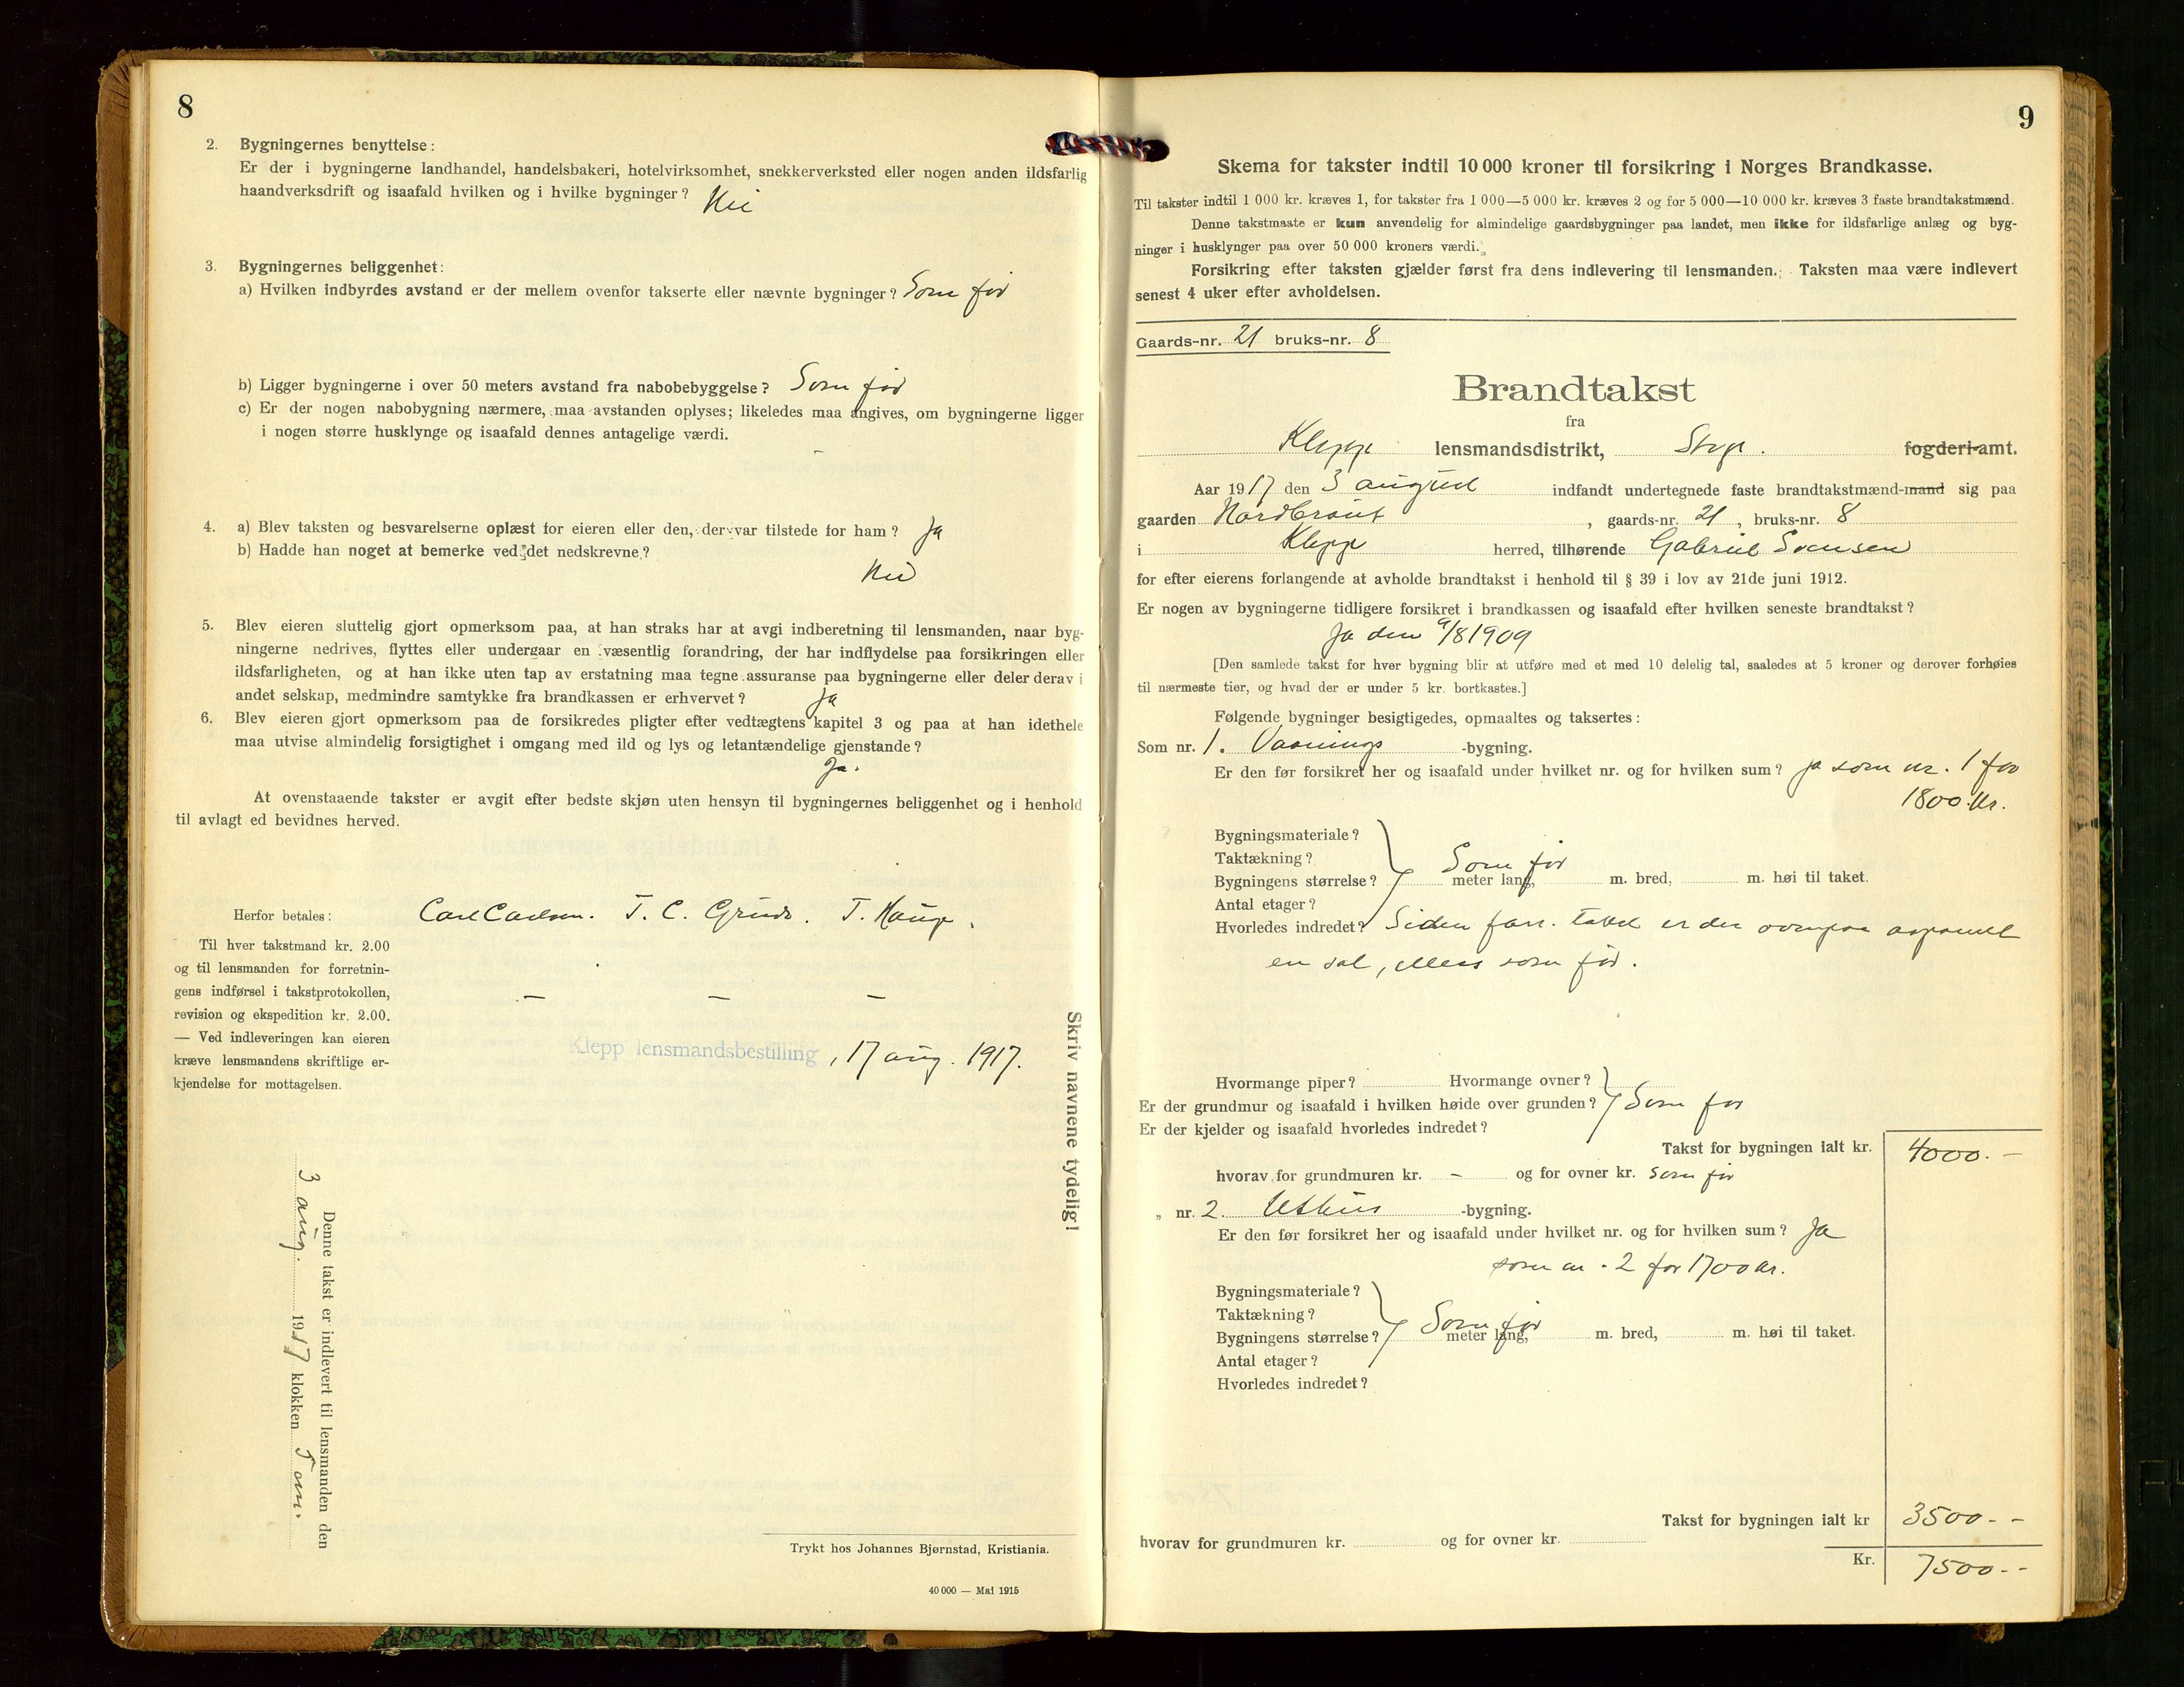 8
2. Bygningernes benyttelse:
Er der i bygningerne landhandel, handelsbakeri, hotelvirksomhet, snekkerverksted eller nogen anden ildsfarlig
haandverksdrift og isaafald hvilken og i hvilke bygninger? Nei
3. Bygningernes beliggenhet:
a) Hvilken indbyrdes avstand er der mellem ovenfor takserte eller nævnte bygninger? Som før
b) Ligger bygningerne i over 50 meters avstand fra nabobebyggelse? Som før
c) Er der nogen nabobygning nærmere, maa avstanden oplyses; likeledes maa angives, om bygningerne ligger
i nogen større husklynge og isaafald dennes antagelige værdi.
4. a) Blev taksten og besvarelserne oplæst for eieren eller den, der var tilstede for ham? Ja
b) Hadde han noget at bemerke ved det nedskrevne?
Nei
5. Blev eieren sluttelig gjort opmerksom paa, at han straks har at avgi indberetning til lensmanden, naar byg-
ningerne nedrives, flyttes eller undergaar en væsentlig forandring, der har indflydelse paa forsikringen eller
ildsfarligheten, og at han ikke uten tap av erstatning maa tegne assuranse paa bygningerne eller deler derav i
andet selskap, medmindre samtykke fra brandkassen er erhvervet? Ja
6. Blev eieren gjort opmerksom paa de forsikredes pligter efter vedtægtens kapitel 3 og paa at han idethele
maa utvise almindelig forsigtighet i omgang med ild og lys og letantændelige gjenstande?
Ja.
At ovenstaaende takster er avgit efter bedste skjøn uten hensyn til bygningernes beliggenhet og i henhold
til avlagt ed bevidnes herved.
Herfor betales: Carl Carlsen. T. C. Grude. T. Hauge.
Til hver takstmand kr. 2.00
og til lensmanden for forretnin-
gens indførsel i takstprotokollen,
revision og ekspedition kr. 2.00.
— Ved indleveringen kan eieren
kræve lensmandens skriftlige er-
kjendelse for mottagelsen.
— — —
Klepp lensmandsbestilling, 17 aug. 1917.
Skriv navnene tydelig!
Denne takst er indlevert til lensmanden den
3 aug. 1917 klokken
Trykt hos Johannes Bjørnstad, Kristiania.
40 000 — Mai 1915
9
Skema for takster indtil 10 000 kroner til forsikring i Norges Brandkasse.
Til takster indtil 1 000 kr. kræves 1, for takster fra 1 000—5 000 kr. kræves 2 og for 5 000—10 000 kr. kræves 3 faste brandtakstmænd.
Denne takstmaate er kun anvendelig for almindelige gaardsbygninger paa landet, men ikke for ildsfarlige anlæg og byg-
ninger i husklynger paa over 50 000 kroners værdi.
Forsikring efter taksten gjælder først fra dens indlevering til lensmanden. Taksten maa være indlevert
senest 4 uker efter avholdelsen.
Gaards-nr. 21 bruks-nr. 8
Brandtakst
fra
Klepp lensmandsdistrikt, fogderi-amt.
Aar 1917 den 3 august indfandt undertegnede faste brandtakstmænd-mand sig paa
gaarden Nordbraut, gaards-nr. 21, bruks-nr. 8
i Klepp herred, tilhørende Gabriel Svensen
for efter eierens forlangende at avholde brandtakst i henhold til § 39 i lov av 21de juni 1912.
Er nogen av bygningerne tidligere forsikret i brandkassen og isaafald efter hvilken seneste brandtakst?
Ja den 9/8 1909
[Den samlede takst for hver bygning blir at utføre med et med 10 delelig tal, saaledes at 5 kroner og derover forhøies
til nærmeste tier, og hvad der er under 5 kr. bortkastes.]
Følgende bygninger besigtigedes, opmaaltes og taksertes:
Som nr. 1. Vaanings -bygning.
Er den før forsikret her og isaafald under hvilket nr. og for hvilken sum? Ja som nr. 1 for
1800 kr.
Bygningsmateriale?
Taktækning? Som før
Bygningens størrelse? meter lang, m. bred, m. høi til taket.
Antal etager?
Hvorledes indredet? Siden forr. takst er der ovenpaa avpanelt
en sal, ellers som før.
Hvormange piper? Hvormange ovner?
Er der grundmur og isaafald i hvilken høide over grunden? Som før
Er der kjelder og isaafald hvorledes indredet?
Takst for bygningen ialt kr. 4000.-
hvorav for grundmuren kr. - og for ovner kr. som før
„ nr. 2. Uthus -bygning.
Er den før forsikret her og isaafald under hvilket nr. og for hvilken sum? Ja
som nr. 2 for 1700 kr.
Bygningsmateriale?
Taktækning? Som før
Bygningens størrelse? meter lang, m. bred, m. høi til taket.
Antal etager?
Hvorledes indredet?
Takst for bygningen ialt kr 3500.-
hvorav for grundmuren kr. og for ovner kr.
Kr. 7500.-